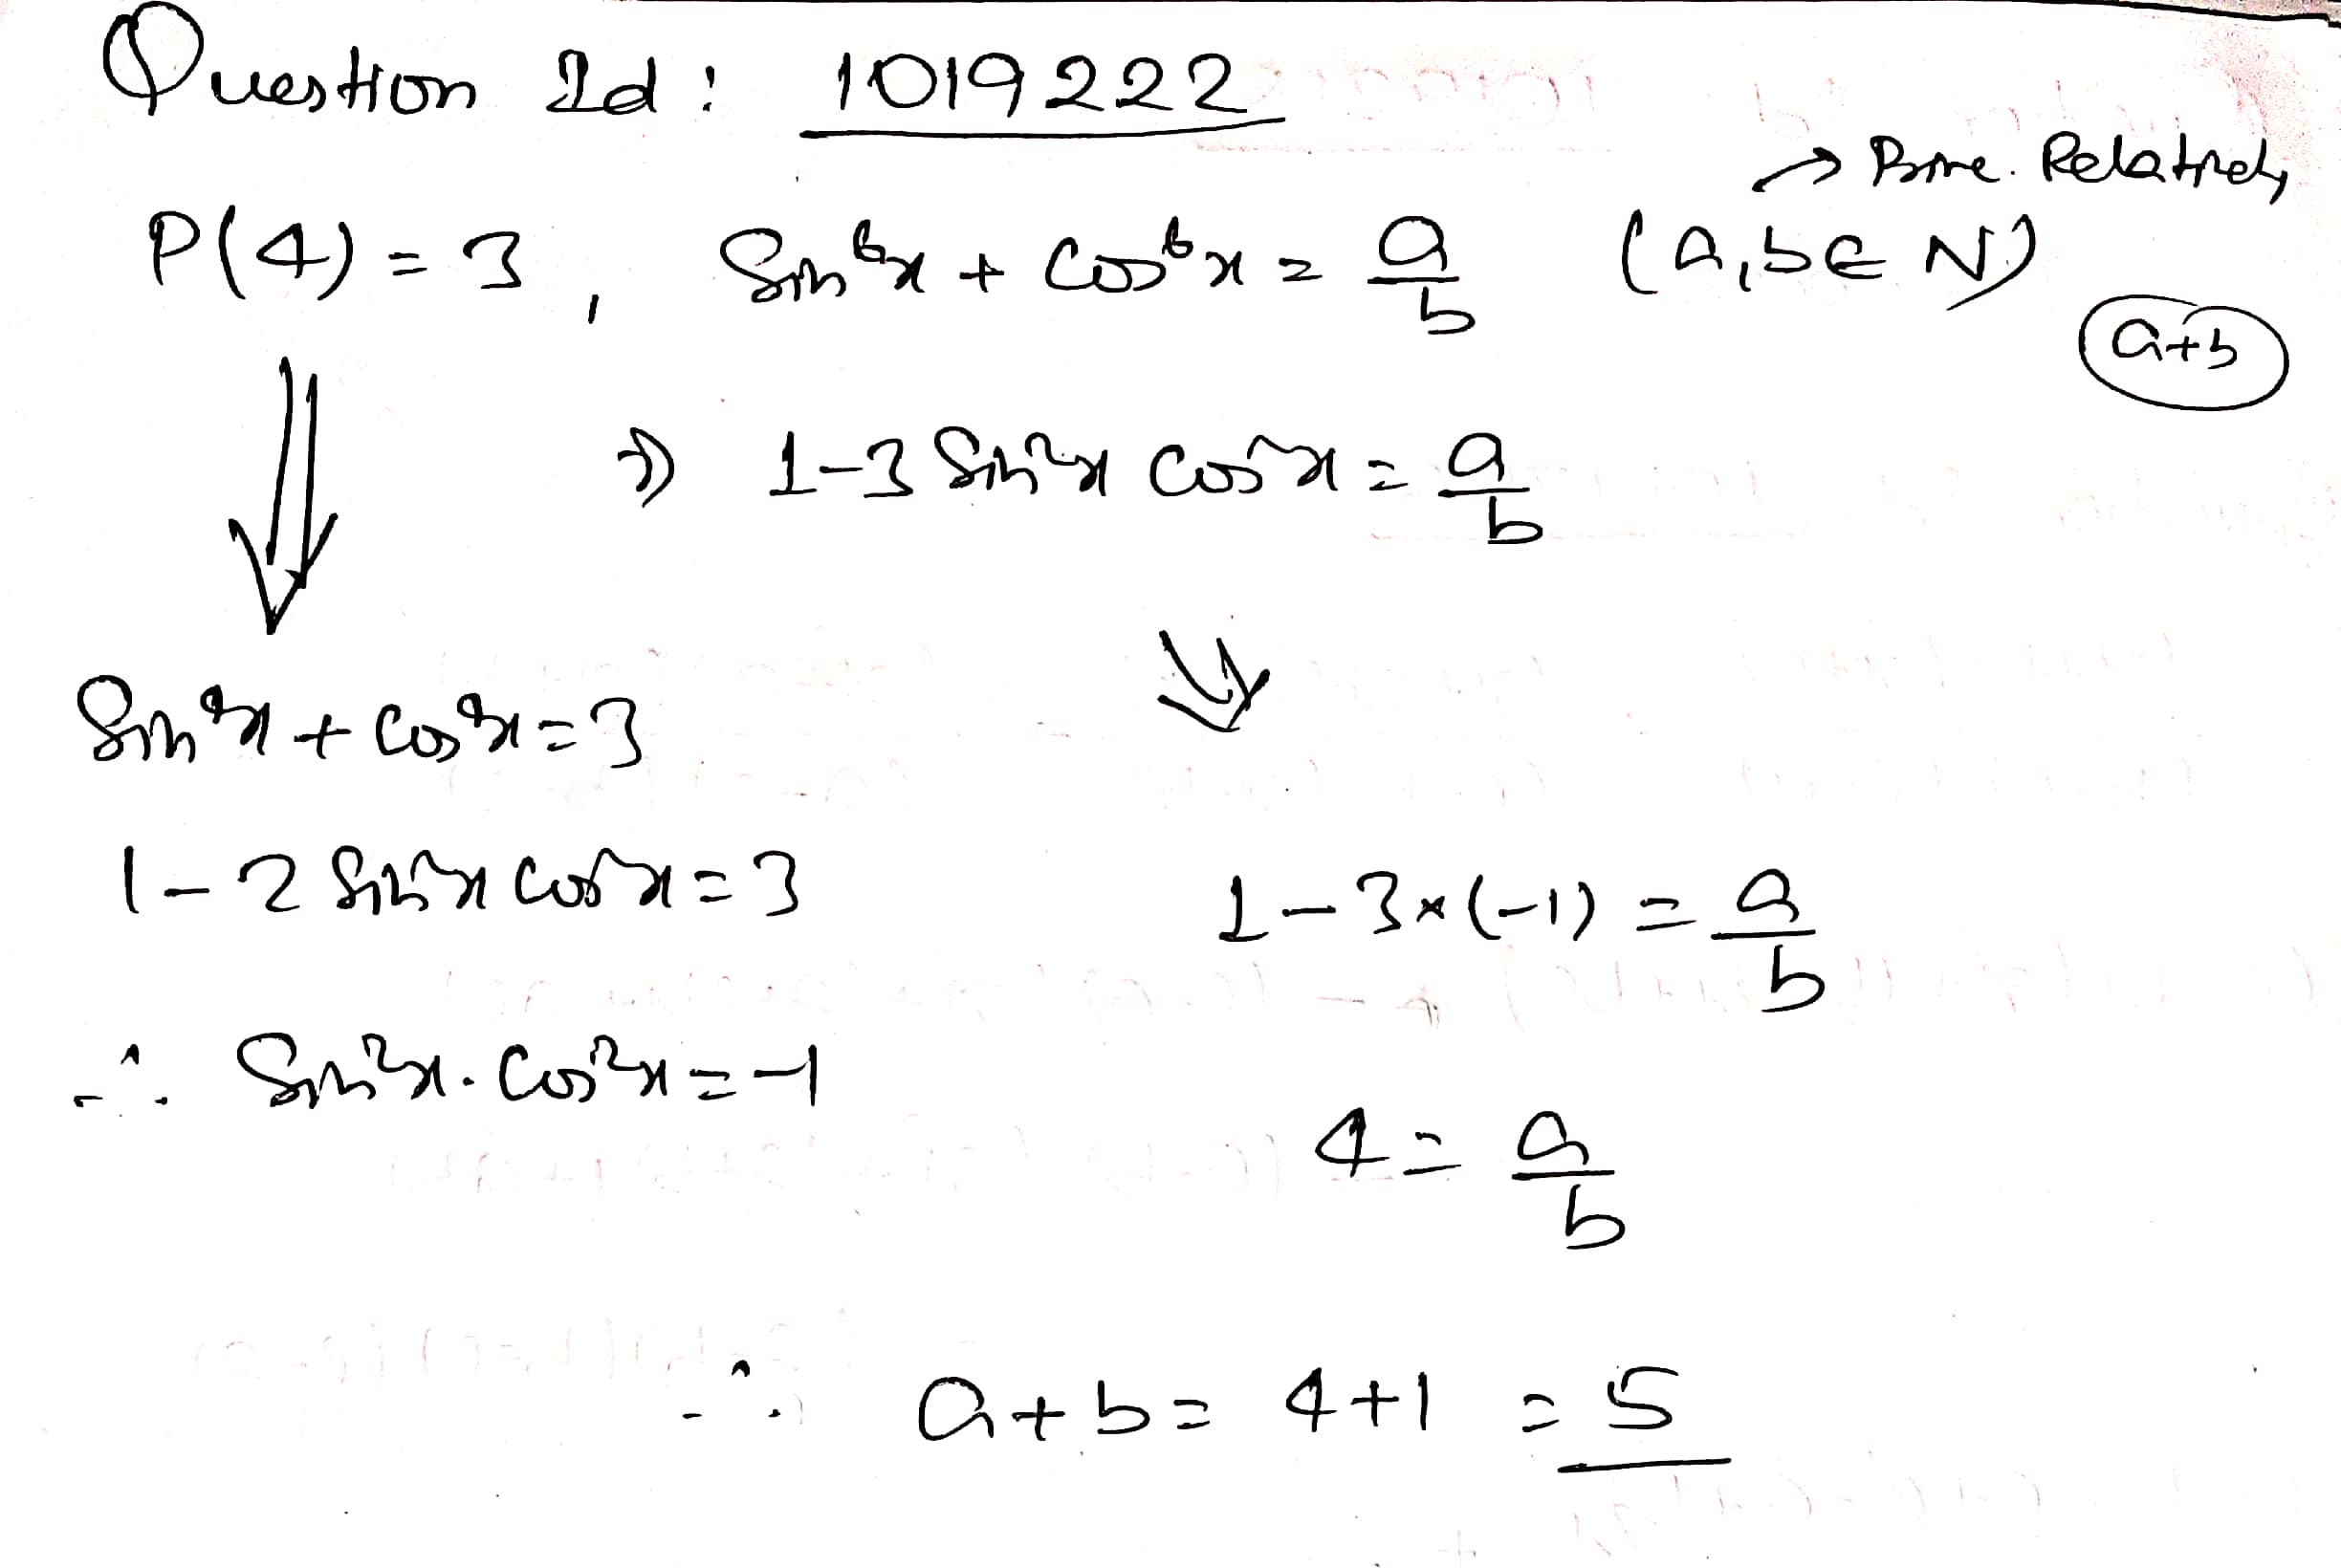 Question Id : 1019222
→ Prime. Relatively
P(4) = 3 , Sin⁶x + Cos⁶x = a/b (a, b ∈ N)
a+b
⇒ 1-3 Sin²x Cos²x = a/b
Sin⁴x + Cos⁴x = 3
1 - 2 Sin²x Cos²x = 3
1 - 3×(-1) = a/b
∴ Sin²x . Cos²x = -1
4 = a/b
∴ a + b = 4+1 = 5